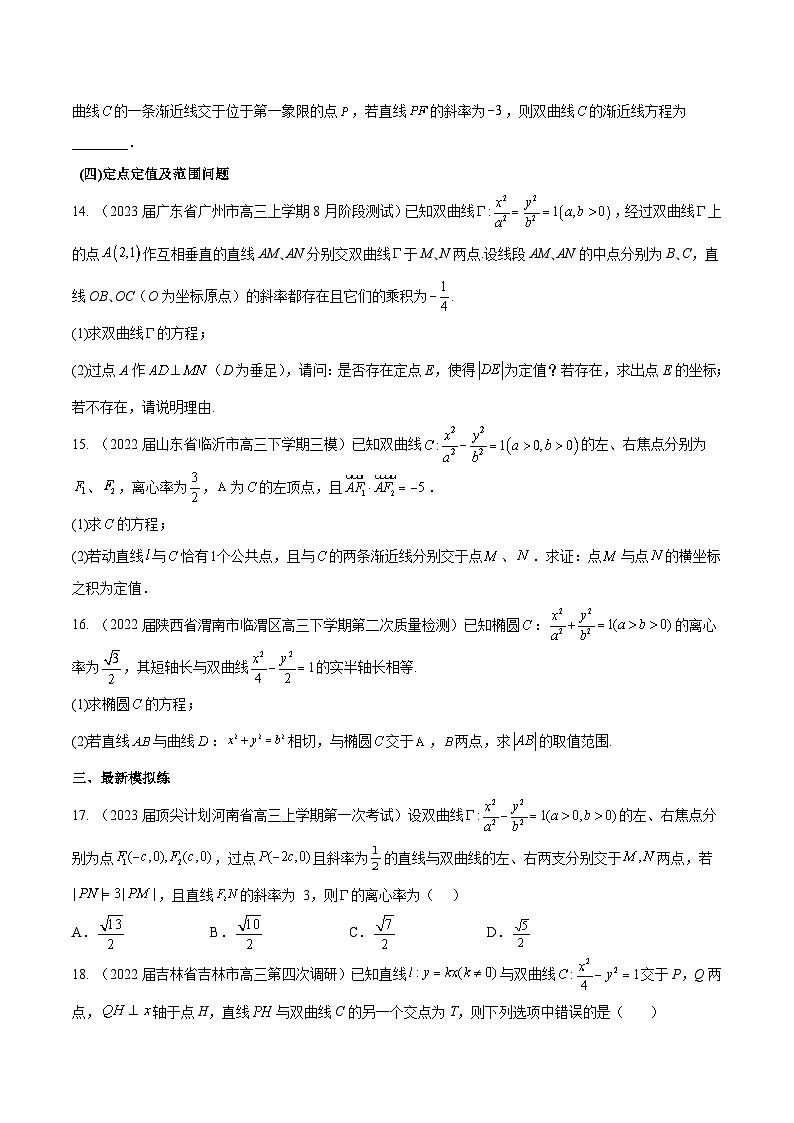 曲线C的一条渐近线交于位于第一象限的点P，若直线PF的斜率为−3，则双曲线C的渐近线方程为
________．
(四)定点定值及范围问题
14. （2023届广东省广州市高三上学期8月阶段测试）已知双曲线Γ:x²/a² = y²/b² = 1(a,b>0)，经过双曲线Γ上
的点A(2,1)作互相垂直的直线AM、AN分别交双曲线Γ于M、N两点.设线段AM、AN的中点分别为B、C，直
线OB、OC（O为坐标原点）的斜率都存在且它们的乘积为−1/4.
(1)求双曲线Γ的方程；
(2)过点A作AD⊥MN（D为垂足），请问：是否存在定点E，使得|DE|为定值？若存在，求出点E的坐标；
若不存在，请说明理由.
15. （2022届山东省临沂市高三下学期三模）已知双曲线C:x²/a² − y²/b² = 1(a>0,b>0)的左、右焦点分别为
F₁、F₂，离心率为3/2，A为C的左顶点，且AF₁·AF₂=−5．
(1)求C的方程；
(2)若动直线l与C恰有1个公共点，且与C的两条渐近线分别交于点M、N．求证：点M与点N的横坐标
之积为定值．
16. （2022届陕西省渭南市临渭区高三下学期第二次质量检测）已知椭圆C：x²/a² + y²/b² = 1(a>b>0)的离心
率为√3/2，其短轴长与双曲线x²/4 − y²/2 = 1的实半轴长相等.
(1)求椭圆C的方程；
(2)若直线AB与曲线D：x²+y²=b²相切，与椭圆C交于A，B两点，求|AB|的取值范围.
三、最新模拟练
17. （2023届顶尖计划河南省高三上学期第一次考试）设双曲线Γ:x²/a² − y²/b² = 1(a>0,b>0)的左、右焦点分
别为点F₁(−c,0),F₂(c,0)，过点P(−2c,0)且斜率为1/2的直线与双曲线的左、右两支分别交于M,N两点，若
|PN|=3|PM|，且直线F₂N的斜率为 3，则Γ的离心率为（　）
A．√13/2 B．√10/2 C．√7/2 D．√5/2
18. （2022届吉林省吉林市高三第四次调研）已知直线l:y=kx(k≠0)与双曲线C:x²/4 − y² = 1交于P，Q两
点，QH⊥x轴于点H，直线PH与双曲线C的另一个交点为T，则下列选项中错误的是（　　）